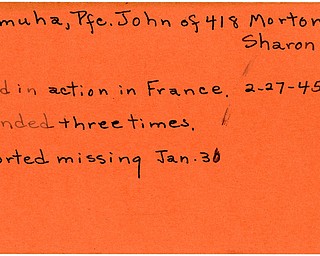 muha, Pfc. John of 418 Morton
Sharon
d in action in France. 2-27-45
nded three times.
orted missing Jan. 30